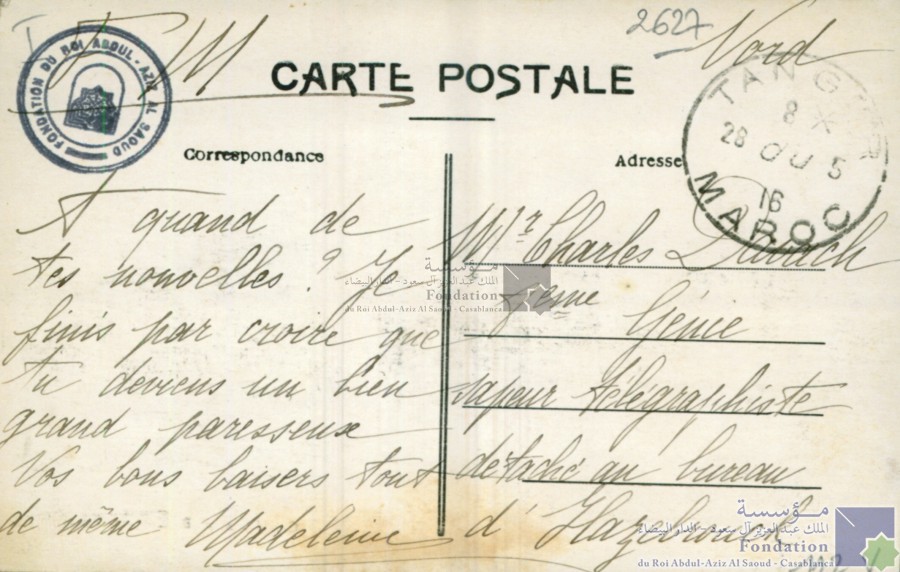 2627
F M
Nord
FONDATION DU ROI ABDUL-AZIZ AL SAOUD
CARTE POSTALE
TANGER
8 *
28 5
16
MAROC
Correspondance
Adresse
A quand de
tes nouvelles ? Je
finis par croire que
tu deviens un bien
grand paresseux
Vos bons baisers tout
de même Madeleine
Mr Charles
Génie
sapeur télégraphiste
détaché au bureau
d'
مؤسسة
الملك عبد العزيز آل سعود - الدار البيضاء
Fondation
du Roi Abdul-Aziz Al Saoud - Casablanca
مؤسسة
الملك عبد العزيز آل سعود - الدار البيضاء
Fondation
du Roi Abdul-Aziz Al Saoud - Casablanca